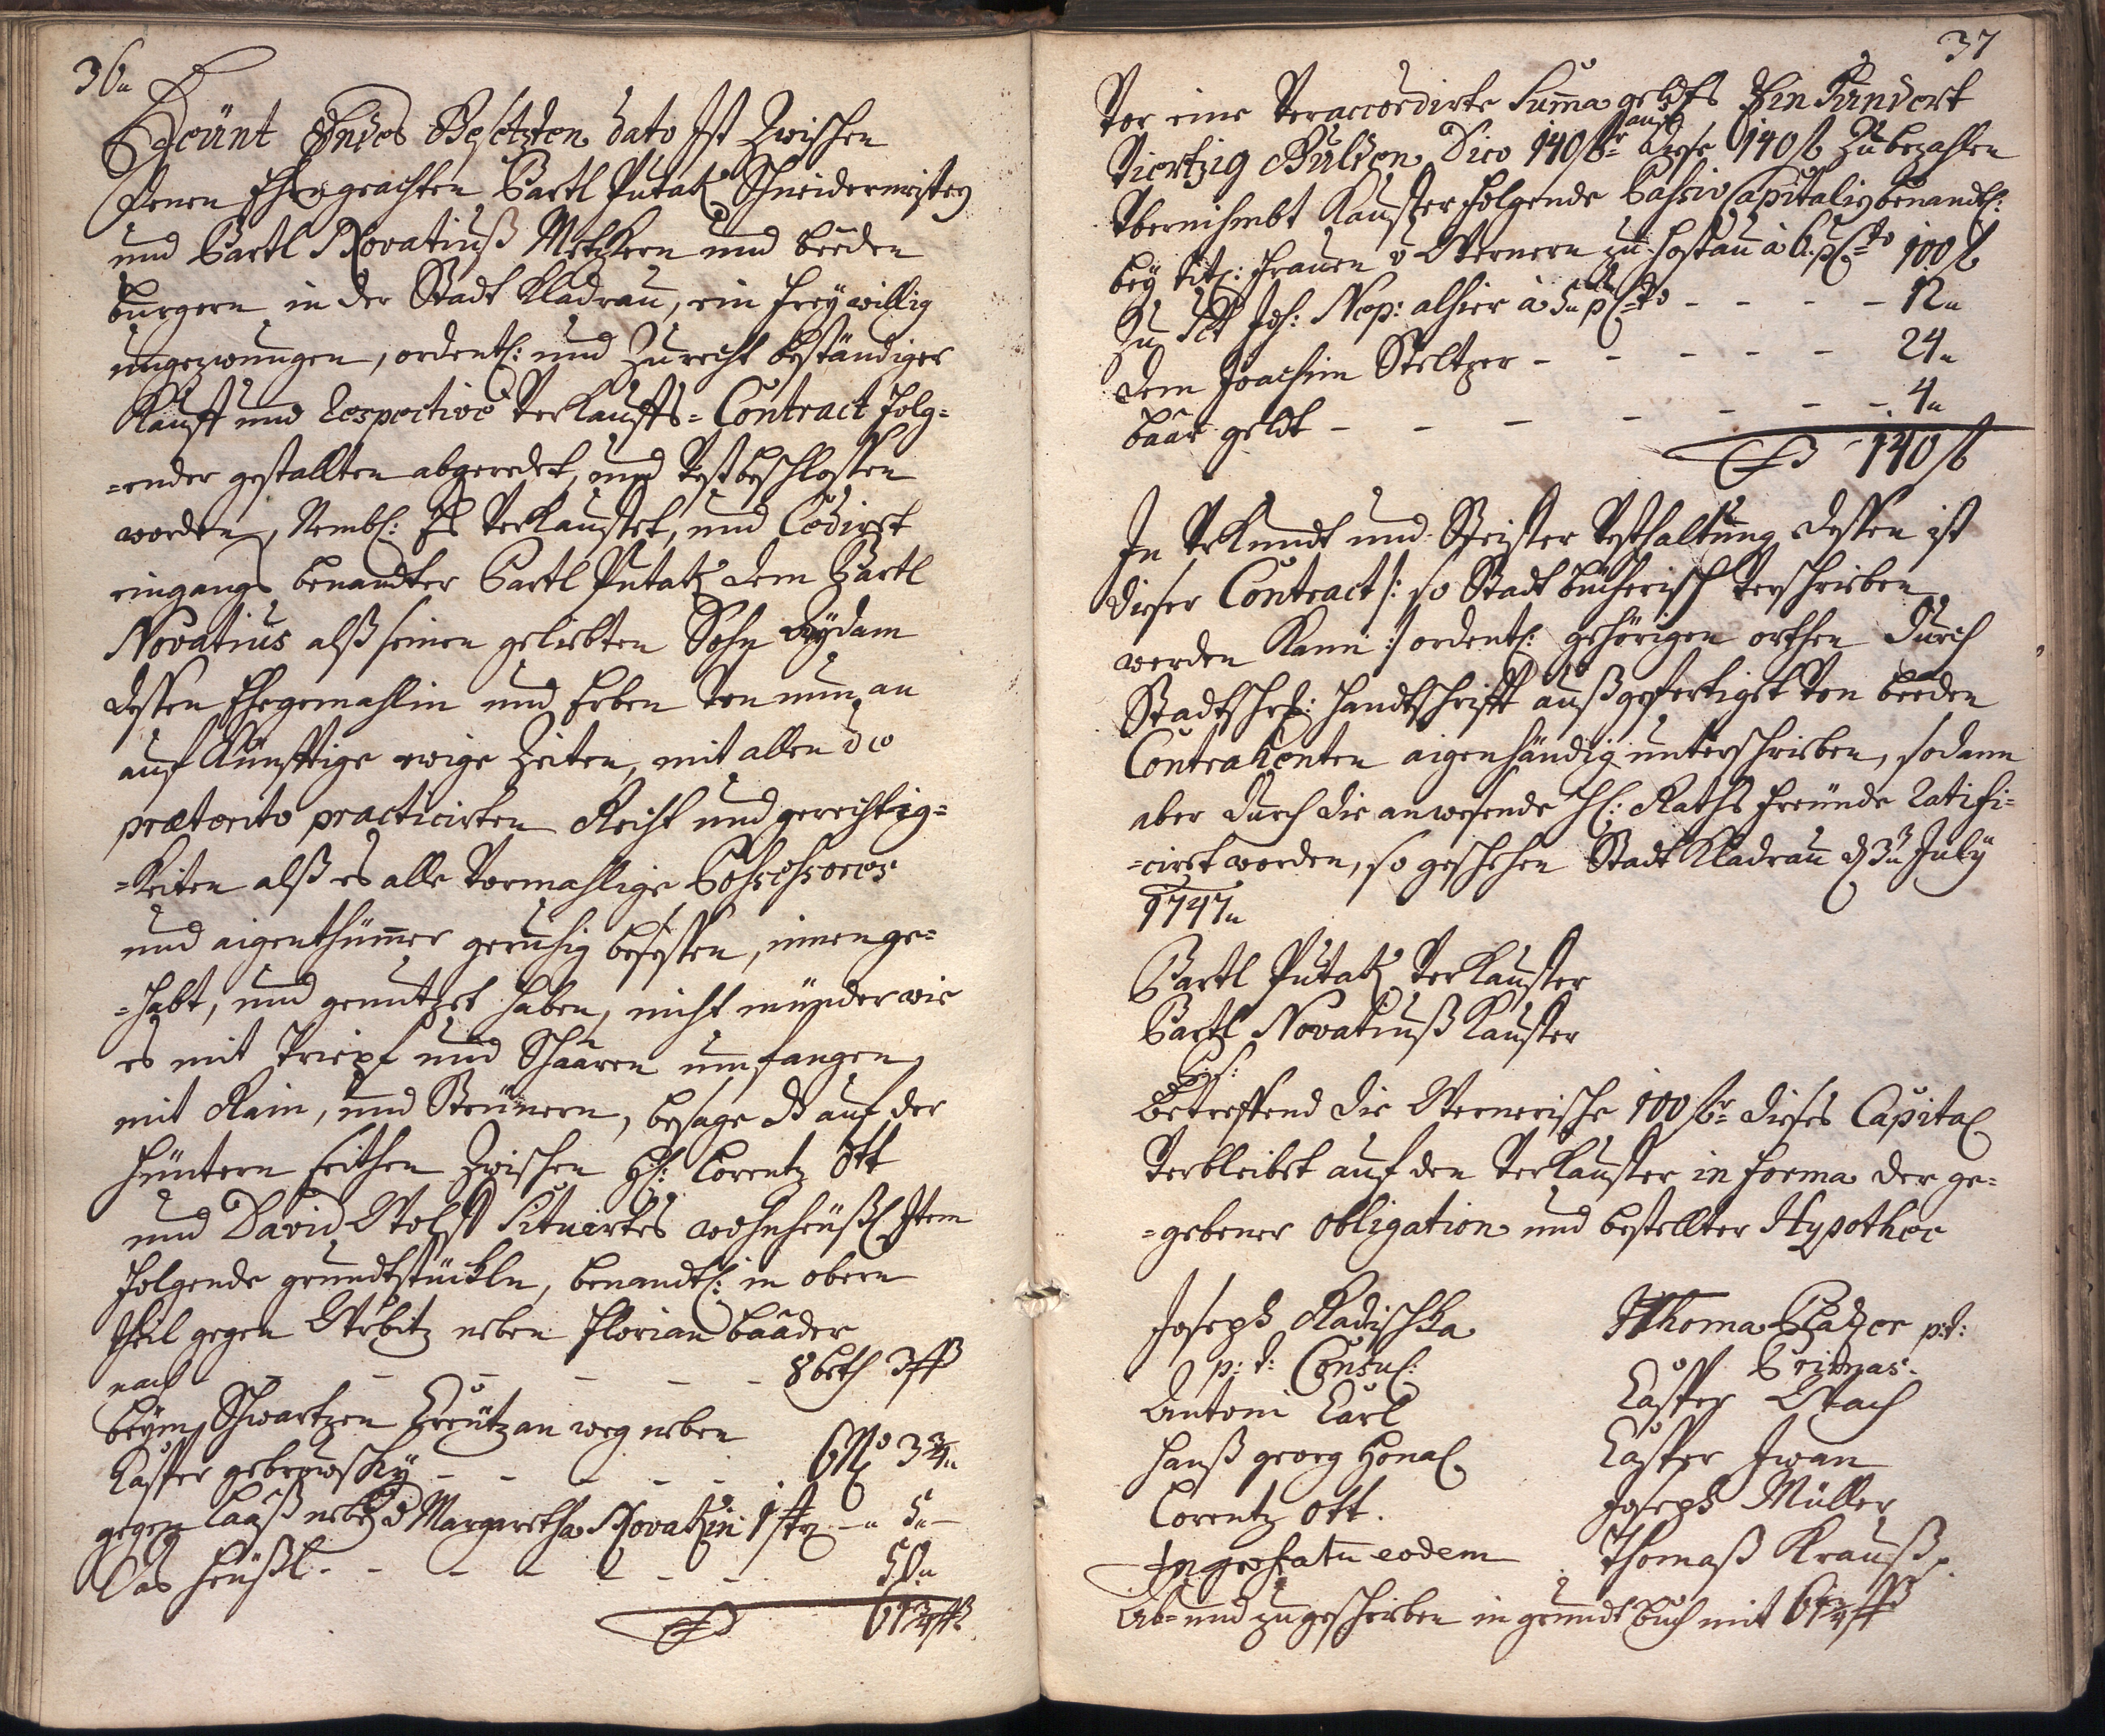 36
Heünt Endes Gesetzten dato Ist Zwischen
denen Ehrngeachten Bartl Putatz Schneidermeistern
und Bartl Novatiuß Metzkern und beeden
burgern in der Stadt Kladrau, ein freywillig
ungezwungen, ordentl: und Zurecht beständiger
Kauff und Respective Verkauffs=Contract folg=
=ender gestallten abgeredet, und Vest beschlossen
worden, Nembl: Es Verkauffet, und Cediret
eingangs benandter Bartl Putatz dem Bartl
Novatius alß seinen geliebten Sohn
dessen Ehegemahlin und Erben von nun an
auf Künfftige ewige Zeiten, mit allen de
præterito practicirten Recht und gerechtig=
=keiten alß es alle Vormahlige Possessores
und aigenthümer geruhig besessen, innenge=
=habt, und genutzet haben, nicht münder wie
es mit und umfangen
mit Rain, und Steünern, besage auf der
hüntern Zwischen H: Lorentz Ott
und David Wolff Situirtes wohnheüßl Item
folgende grundtstückln, benandtl: in obern
theil gegen neben Florian Baader
nach - - - - - - 8 beth 3
beym Schwartzen Kreütz an weg neben
Kasper - - - - 3¾
gegen Laaß neben d Margaretha Novatzin 1 - 5
Das Heüßl - - - - - - 50
61¾
37
Vor eine Veraccordirte Suma geldts Ein Hundert
Viertzig Gulden Dico 140 f auch diese 140 f Zu bezahlen
Vbernihmbt Kauffer folgende Passiv Capitalien benandtl:
bey tit: Frauen v Wernern zu Hostau à 6 p Cto 100 f
Zu Sct Joh: Nep: alhier à 5 p Cto - - - - 12
dem Joachim Steltzer - - - - - 24
baar geldt - - - - - - 4
140 f
In Vrkundt und Steiffer Vesthaltung dessen ist
dieser Contract /: so Stadt bücherisch Verschrieben
werden Kann :/ ordentl: gehörigen orthen durch
Stadtschr: handtschrifft außgefertiget von beeden
Contrahenten aigenhändig unterschrieben, sodann
aber durch die anwesende H: Raths freünde Ratifi=
=ciret worden, so geschehen Stadt Kladrau d 3 July
1747
Bartl Putatz Verkauffer
Bartl Novatiuß Kauffer
betreffend die Wernerische 100 f dieses Capital
Verbleibet auf den Verkauffer in forma der ge=
=gebener obligation und bestellter Hypothec
Joseph Radischka
p: t: Consul:
Antoni Carl
Hanß georg Honal
Lorentz Ott.
Ingrohatu eodem
Thoma p: t:
Primas:
Casper
Casper Iwan
Joseph Müller
Thomaß Krauß
Ab= und zugeschrieben in grundtbuch mit 61¾